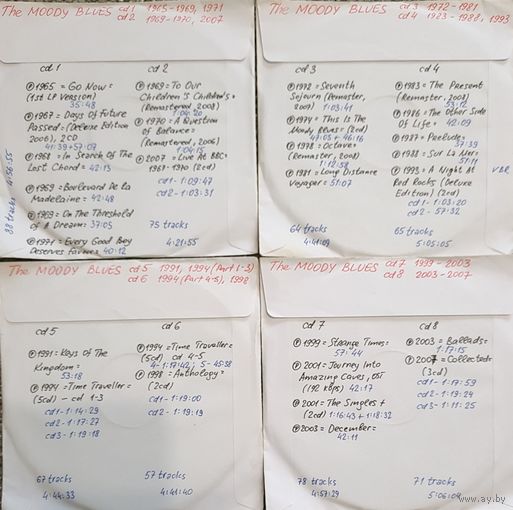 The MOODY BLUES cd 1 1965-1969, 1971
cd 2 1969-1970, 2007
cd 1
1965 = Go Now =
(1st LP Version)
35:48
1967 = Days Of Future
Passed = (Deluxe Edition
2006), 2CD
41:39 + 57:07
1968 = In Search Of The
Lost Chord = 42:13
1969 = Boulevard De La
Madelaine = 42:48
1969 = On The Threshold
of A Dream = 37:05
1971 = Every Good Boy
Deserves Favour = 40:12
88 tracks 4:56:55
cd 2
1969 = To Our
Children's Children's =
(Remastered, 2008)
1:04:20
1970 = A Question
of Balance =
(Remastered, 2006)
1:04:15
2007 = Live At BBC:
1967-1970 (2cd)
cd1 - 1:09:47
cd2 - 1:03:31
75 tracks
4:21:55
The MOODY BLUES cd 3 1972-1981
cd 4 1983-1988, 1993
cd 3
1972 = Seventh
Sojourn (Remaster,
2007) 1:03:41
1974 = This Is The
Moody Blues = (2cd)
47:05 + 46:16
1978 = Octave =
(Remaster, 2008)
1:12:58
1981 = Long Distance
Voyager = 51:07
64 tracks
4:41:09
cd 4
1983 = The Present
(Remaster, 2008)
53:12
1986 = The Other Side
Of Life = 42:09
1987 = Prelude =
37:39
1988 = Sur La Mer =
51:11
1993 = A Night At
Red Rocks (Deluxe
Edition) (2cd)
cd 1 - 1:03:20
cd 2 - 57:32
VBR
65 tracks
5:05:05
The MOODY BLUES cd 5 1991, 1994 (Part 1-3)
cd 6 1994 (Part 4-5), 1998
cd 5
1991 = Keys Of The
Kingdom =
53:18
1994 = Time Traveller =
(5cd) - cd 1-3
cd1 - 1:14:29
cd2 - 1:17:27
cd3 - 1:19:18
67 tracks
4:44:33
cd 6
1994 = Time Traveller =
(5cd) cd 4-5
4 - 1:17:42; 5 - 45:38
1998 = Anthology =
(2cd)
cd1 - 1:19:00
cd2 - 1:19:19
57 tracks
4:41:40
The MOODY BLUES cd 7 1999-2003
cd 8 2003-2007
cd 7
1999 = Strange Times =
57:44
2001 = Journey Into
Amazing Caves, OST
(192 kbps) 42:17
2001 = The Singles +
(2cd) 1:16:43 + 1:18:32
2003 = December =
42:11
78 tracks
4:57:29
cd 8
2003 = Ballads =
1:17:15
2007 = Collected =
(3cd)
cd1 - 1:17:59
cd2 - 1:19:24
cd3 - 1:11:25
71 tracks
5:06:04
www.ay.by